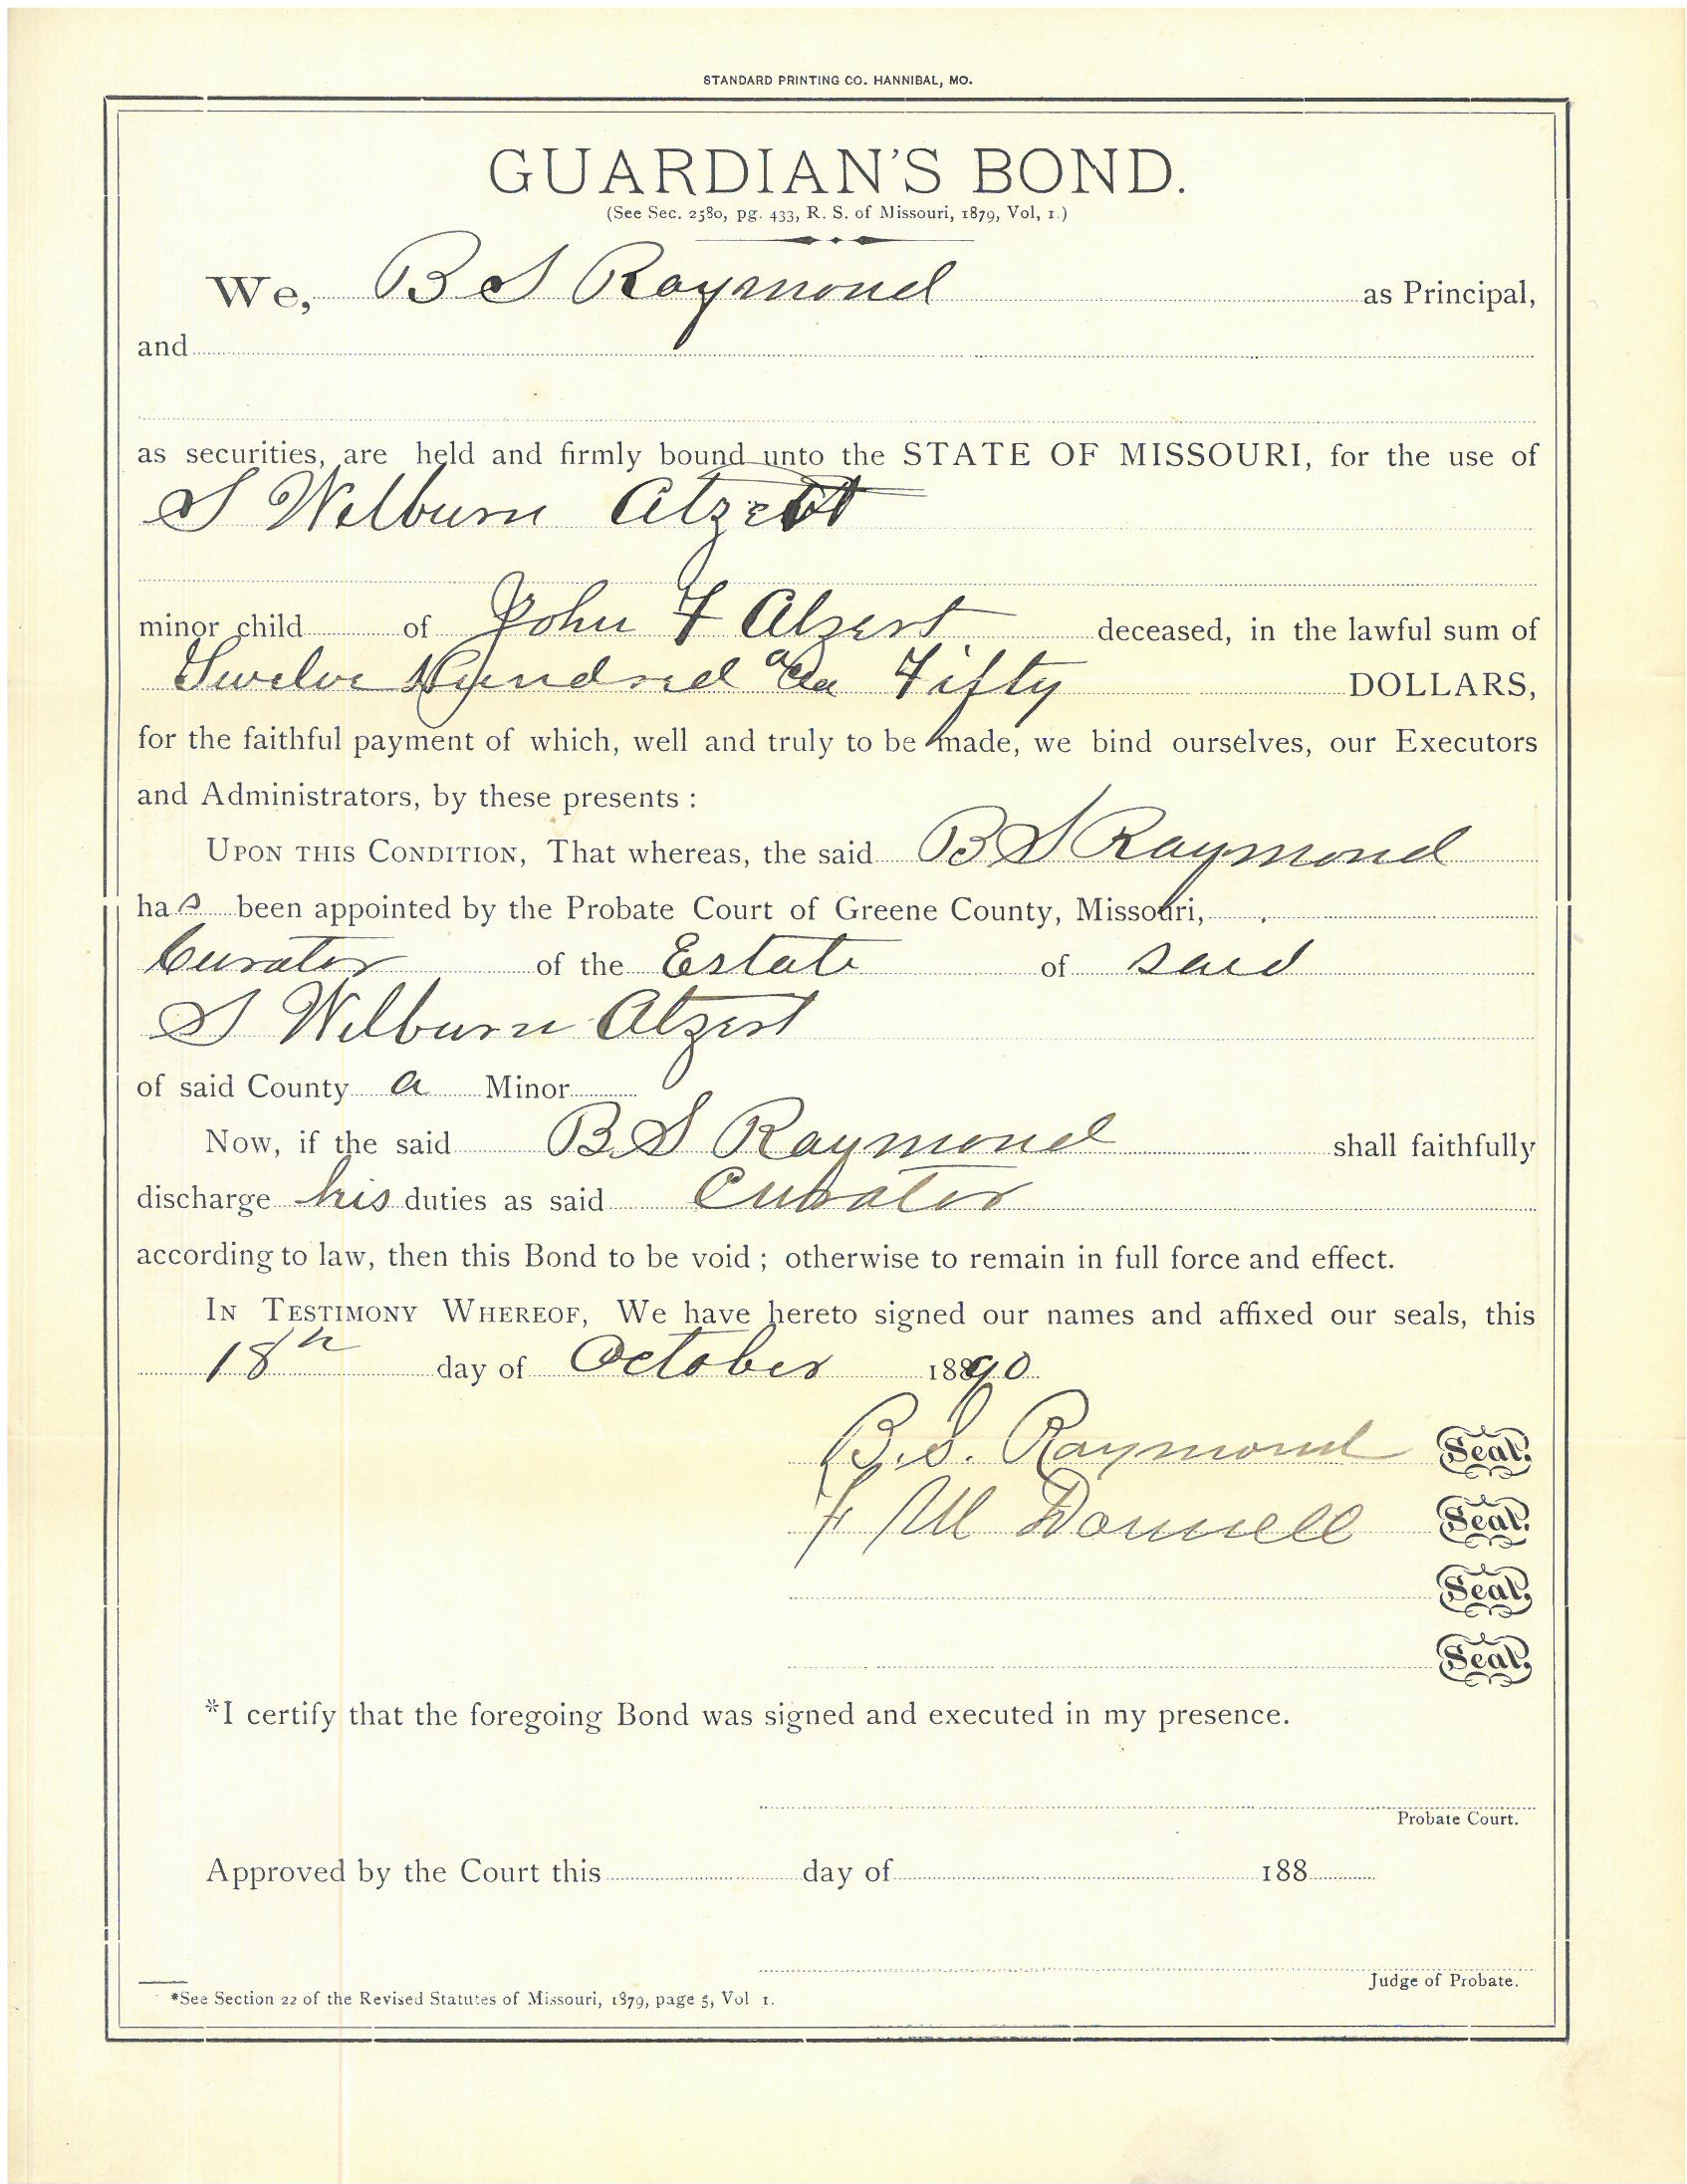 STANDARD PRINTING CO. HANNIBAL, MO.
GUARDIAN'S BOND.
(See Sec. 2580, pg. 433, R. S. of Missouri, 1879, Vol, 1.)
We, B S Raymond as Principal,
and
as securities, are held and firmly bound unto the STATE OF MISSOURI, for the use of
S Wilburn Atzert
minor child of John F Atzert deceased, in the lawful sum of
Twelve Hundred and Fifty DOLLARS,
for the faithful payment of which, well and truly to be made, we bind ourselves, our Executors
and Administrators, by these presents :
UPON THIS CONDITION, That whereas, the said B S Raymond
has been appointed by the Probate Court of Greene County, Missouri,
Curator of the Estate of said
S Wilburn Atzert
of said County a Minor
Now, if the said B S Raymond shall faithfully
discharge his duties as said Curator
according to law, then this Bond to be void ; otherwise to remain in full force and effect.
IN TESTIMONY WHEREOF, We have hereto signed our names and affixed our seals, this
18th day of October 1890
B.S. Raymond Seal.
F M Donnell Seal.
Seal.
Seal.
*I certify that the foregoing Bond was signed and executed in my presence.
Probate Court.
Approved by the Court this day of 188
Judge of Probate.
*See Section 22 of the Revised Statutes of Missouri, 1879, page 5, Vol 1.